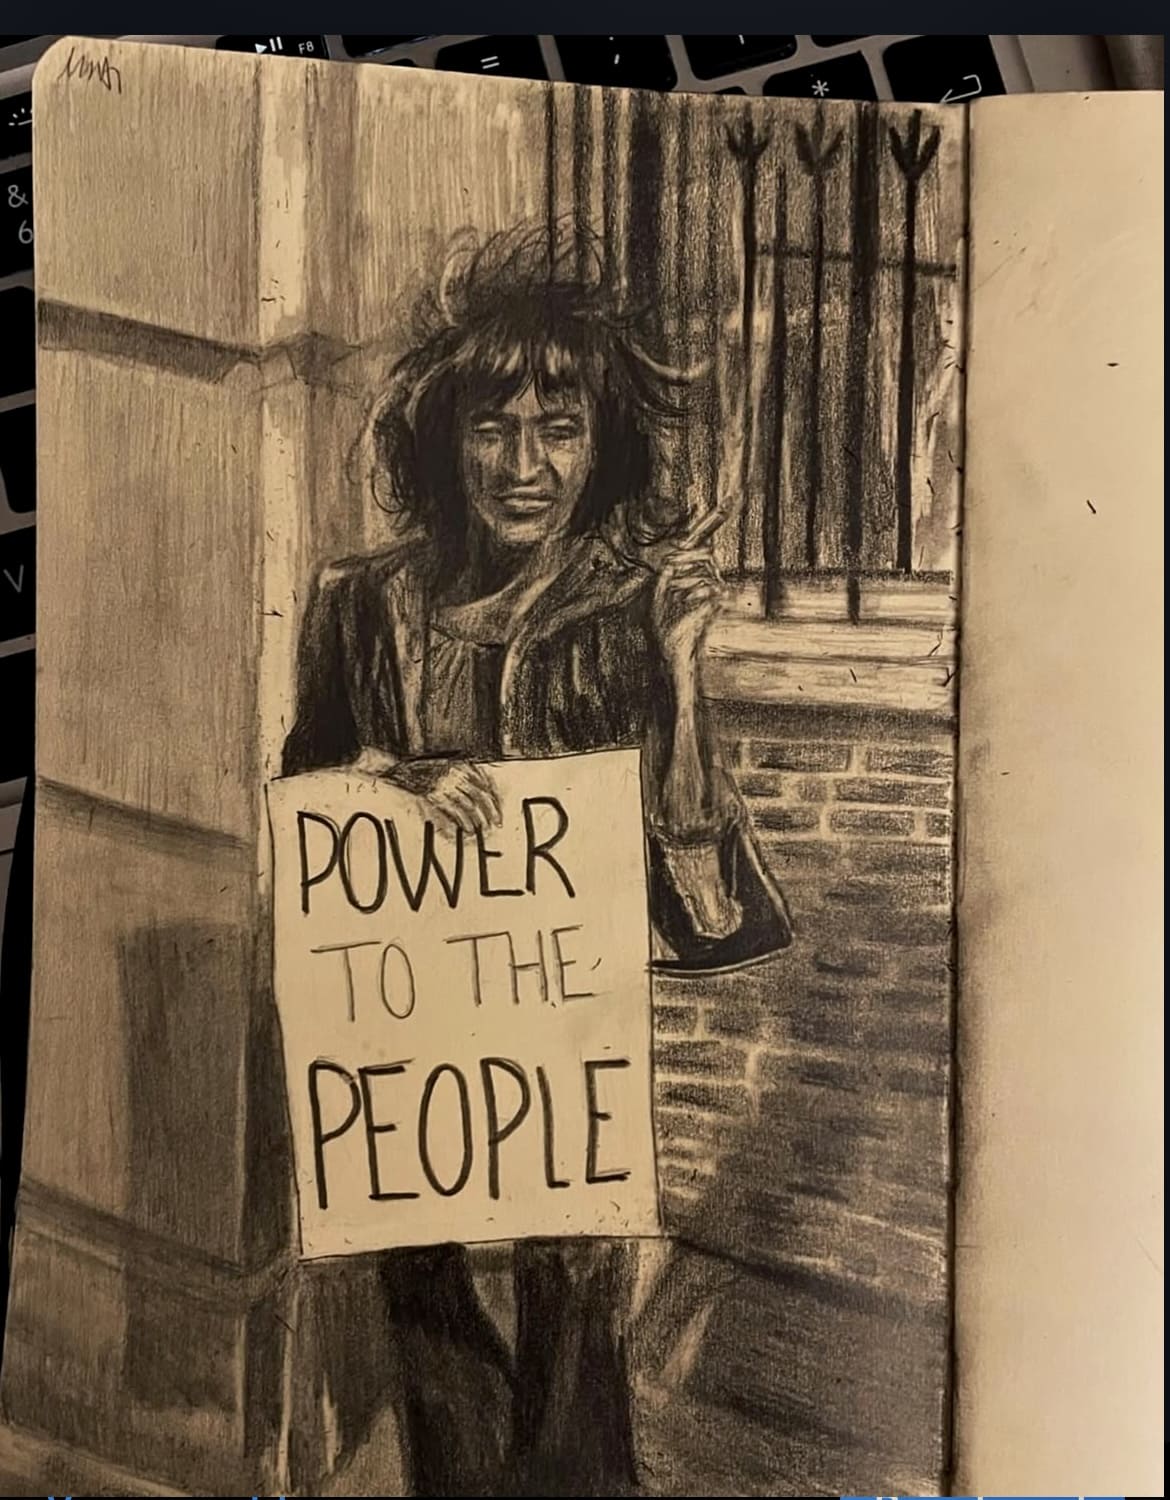 F8
=
;
*
&
6
V
POWER
TO THE
PEOPLE